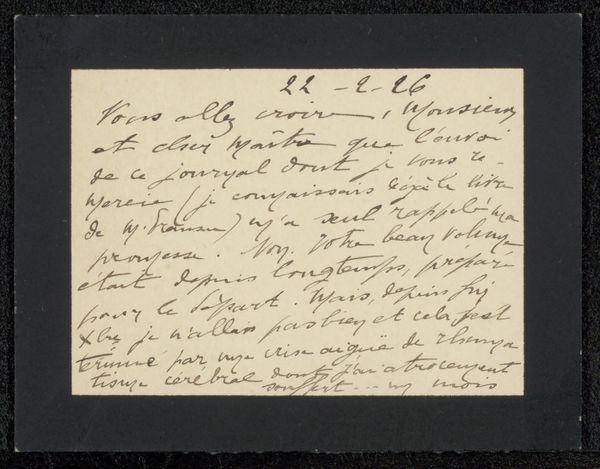 22 - 2 - 26
Vous allez croire, Monsieur
et cher Maître que l'envoi
de ce journal dont je vous re-
mercie (je connaissais déjà le livre
de M. ) m'a seul rappelé ma
promesse. Non. Votre beau volume
était depuis longtemps, préparé
pour le départ. Mais, depuis fin
Xbre je n'allais pas bien et cela s'est
terminé par une crise aiguë de rhuma
tisme cérébral dont j'ai atrocement
souffert ... un mois